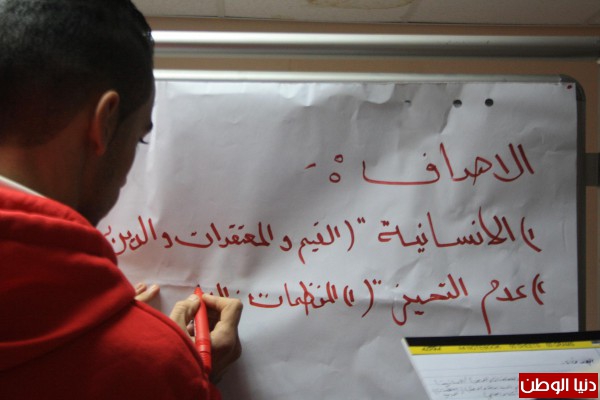 الاهداف :-
١) الانسانية " (القيم و المعتقدات والدين
٢) عدم التحيز " (١) المنظمات
دنيا الوطن